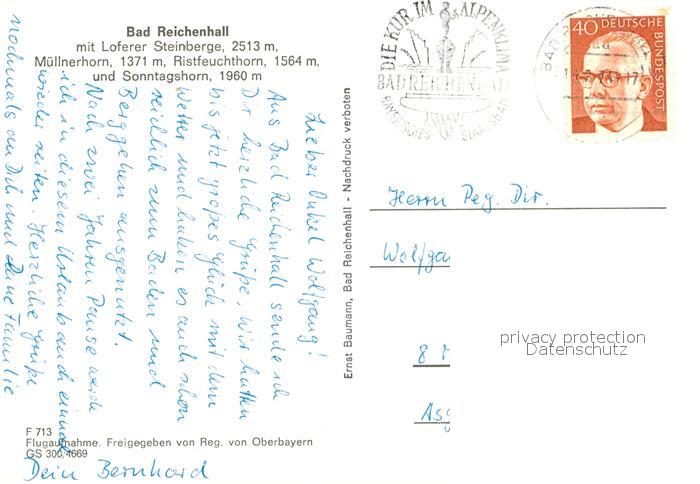 Bad Reichenhall
mit Loferer Steinberge, 2513 m,
Müllnerhorn, 1371 m, Ristfeuchthorn, 1564 m,
und Sonntagshorn, 1960 m
Lieber Onkel Wolfgang!
Aus Bad Reichenhall sende ich
Dir herzliche Grüße. Wir hatten
bis jetzt großes Glück mit dem
Wetter und haben es auch schon
reichlich zum Baden und
Berggehen ausgenutzt.
Nach zwei Jahren Pause werde
ich in diesem Urlaub auch einmal
wieder reiten. Herzliche Grüße
nochmals an Dich und Deine Familie
Dein Bernhard
F 713
Flugaufnahme. Freigegeben von Reg. von Oberbayern
GS 300/4669
Ernst Baumann, Bad Reichenhall - Nachdruck verboten
DIE KUR IM ALPENKLIMA
BAD REICHENHALL
BAYERISCHES STAATSBAD
40 DEUTSCHE
BUNDESPOST
Herrn Reg. Dir.
Wolfga
8
privacy protection
Datenschutz